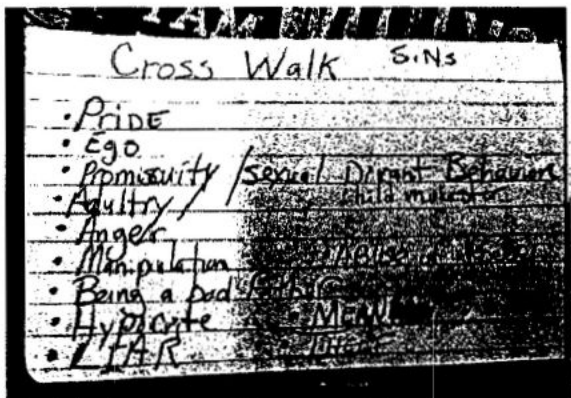 I AM WAITING
Cross Walk SiNs
• PRiDE
• Ego
• Promiscuity / sexual Diviant Behavior
• Adultry / child molester
• Anger
• Manipulation
• Being a bad
• Hypocrite
• LIAR